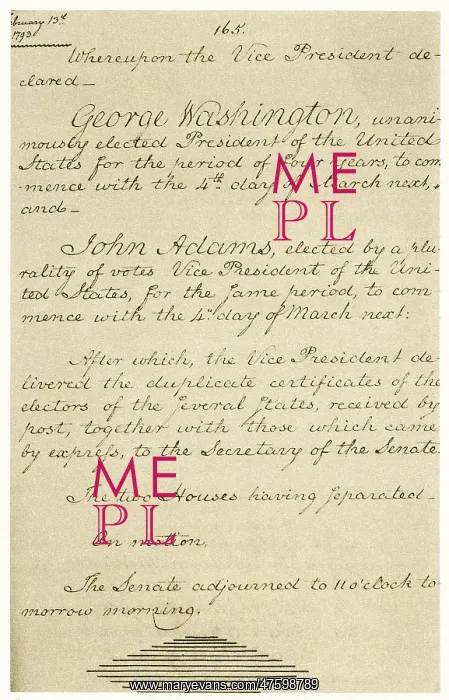 February 13th
1793
165.
Whereupon the Vice President de-
clared_
George Washington, unani-
mously elected President of the United
States for the period of four years, to com
-mence with the 4th day of March next,
and_
John Adams, elected by a plu-
rality of votes Vice President of the Uni-
ted States, for the same period, to com
mence with the 4th day of March next:
After which, the Vice President de
livered the duplicate certificates of the
electors of the several States, received by
post, together with those which came
by express, to the Secretary of the Senate.
The two Houses having separated_
On motion,
The Senate adjourned to 11 o'clock to
morrow morning.
ME
PL
ME
PL
www.maryevans.com/47598789